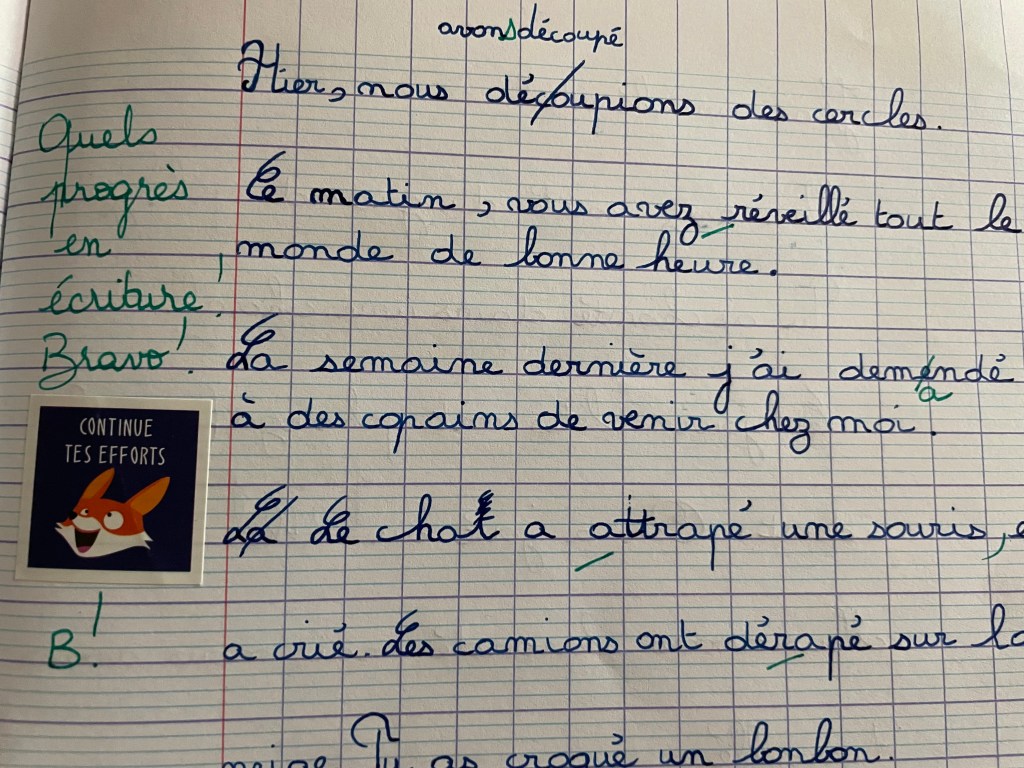 avons découpé
Hier, nous découpions des cercles.
Quels
progrès
en
écriture !
Bravo !
Ce matin, vous avez réveillé tout le
monde de bonne heure.
La semaine dernière j'ai demandé
à des copains de venir chez moi.
CONTINUE
TES EFFORTS
Le chat a attrapé une souris,
B !
a crié. Des camions ont dérapé sur
neige Tu as croqué un bonbon.